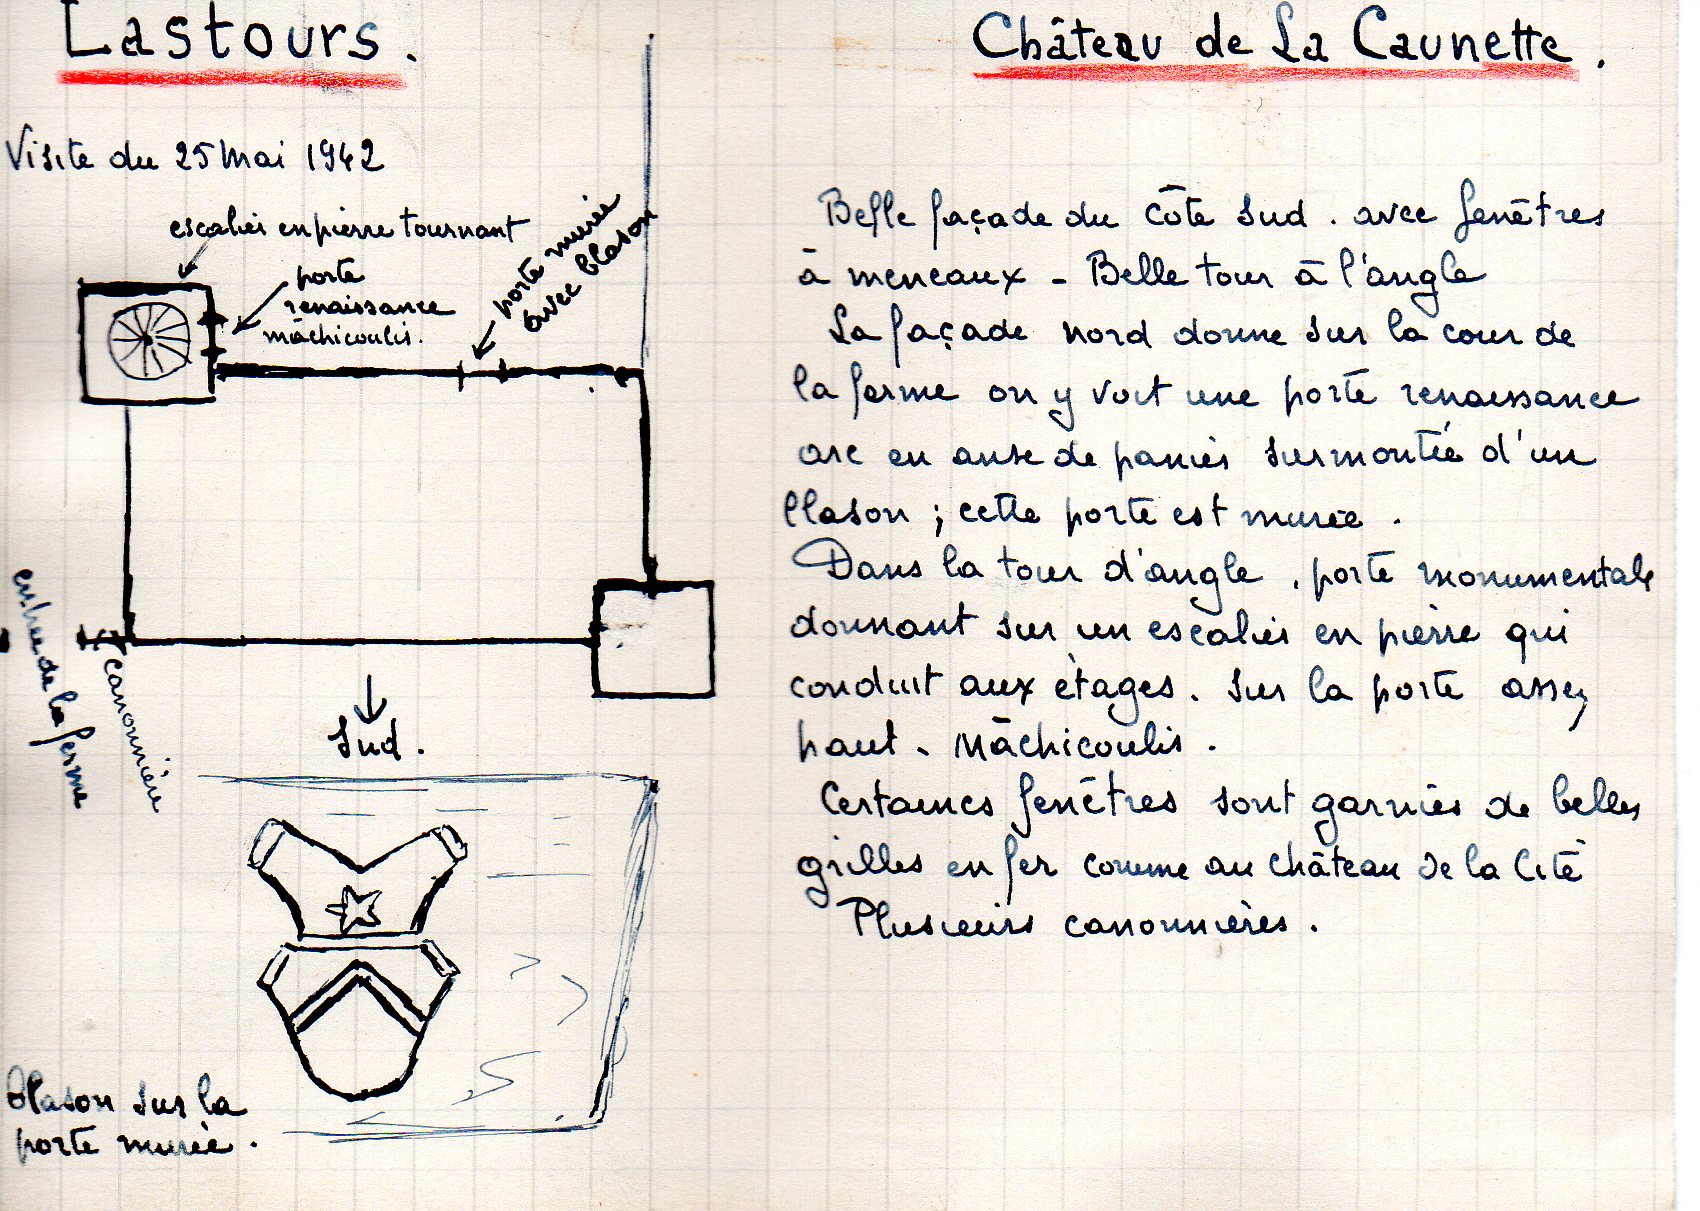 Lastours.
Château de La Caunette.
Visite du 25 Mai 1942
escalier en pierre tournant
porte
renaissance
mâchicoulis.
porte murée
avec blason
entrée de la ferme
canonnière
Sud.
Blason sur la
porte murée.
Belle façade du côté Sud. avec fenêtres
à meneaux - Belle tour à l'angle
La façade nord donne sur la cour de
la ferme on y voit une porte renaissance
arc en anse de panier surmontée d'un
blason ; cette porte est murée.
Dans la tour d'angle, porte monumentale
donnant sur un escalier en pierre qui
conduit aux étages. Sur la porte assez
haut - Mâchicoulis.
Certaines fenêtres sont garnies de belles
grilles en fer comme au château de la Cité
Plusieurs canonnières.